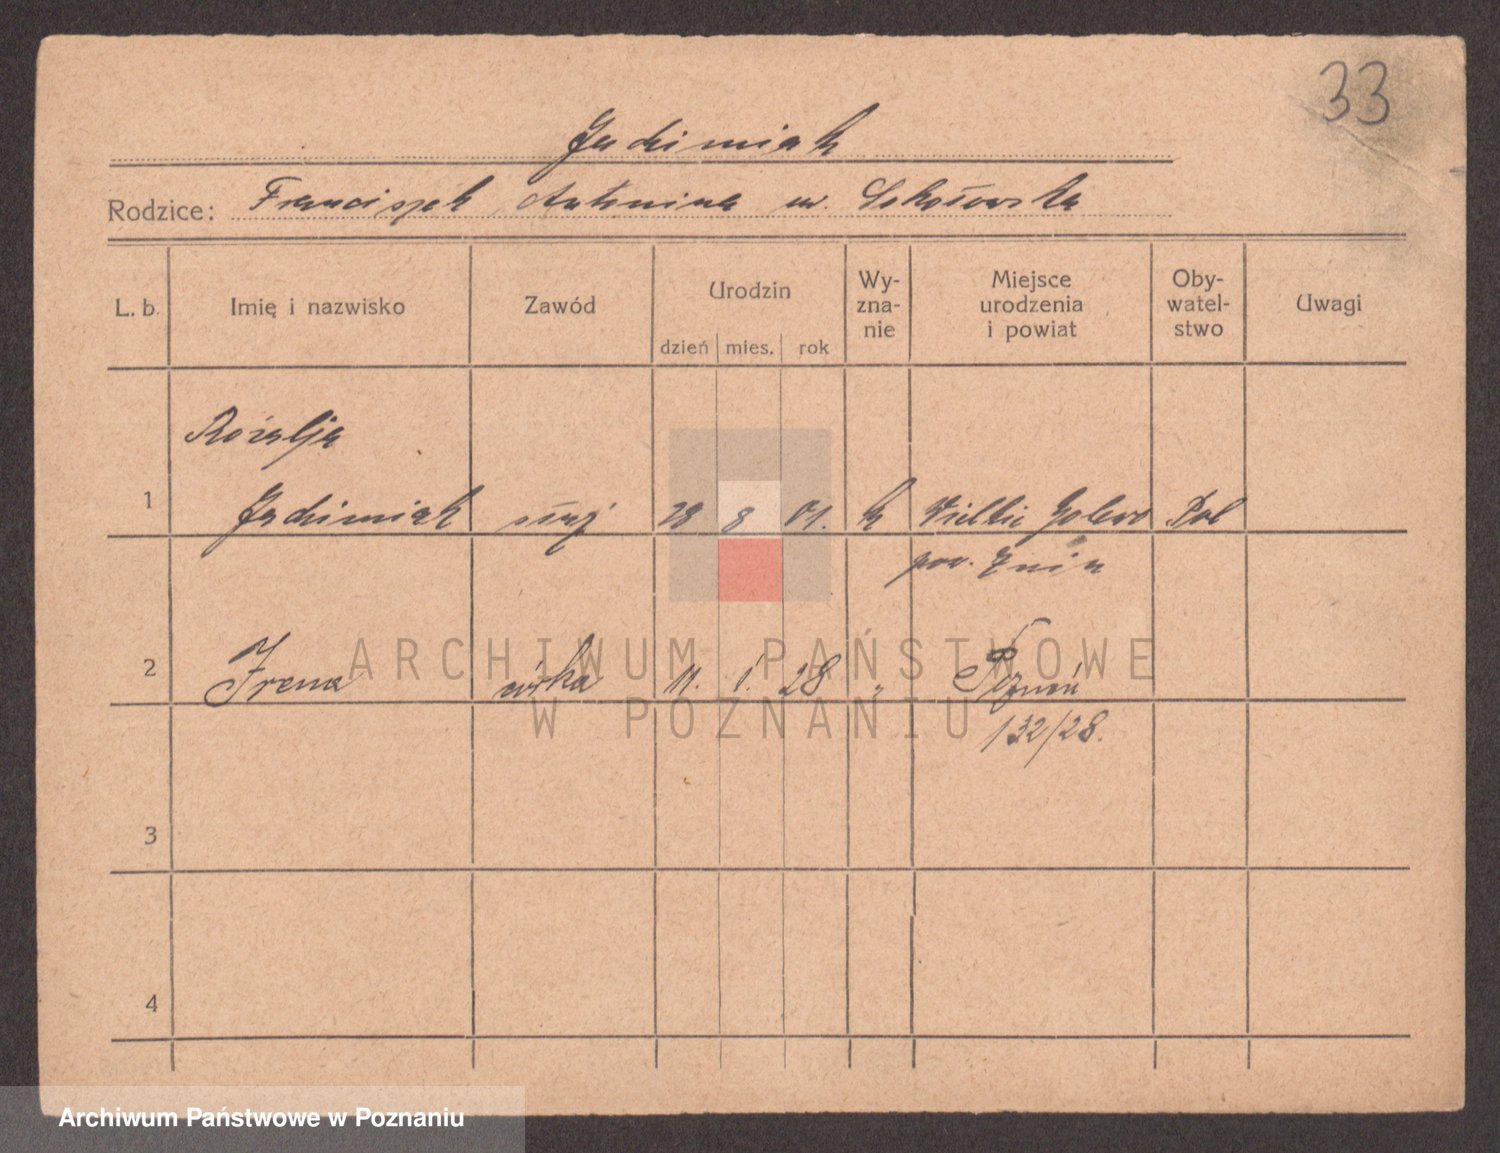 33
Jachimiak
Rodzice: Franciszek Antonina ur. Sokołowska
L. b. Imię i nazwisko Zawód Urodzin dzień mies. rok Wy-zna-nie Miejsce urodzenia i powiat Oby-watel-stwo Uwagi
Rozalja
1 Jachimiak służ 28 8 01. k Wielkie Golewo Pol
pow. Żnin
2 Irena córka 11. 1. 28 " Poznań
132/28.
3
4
ARCHIWUM PAŃSTWOWE
W POZNANIU
Archiwum Państwowe w Poznaniu